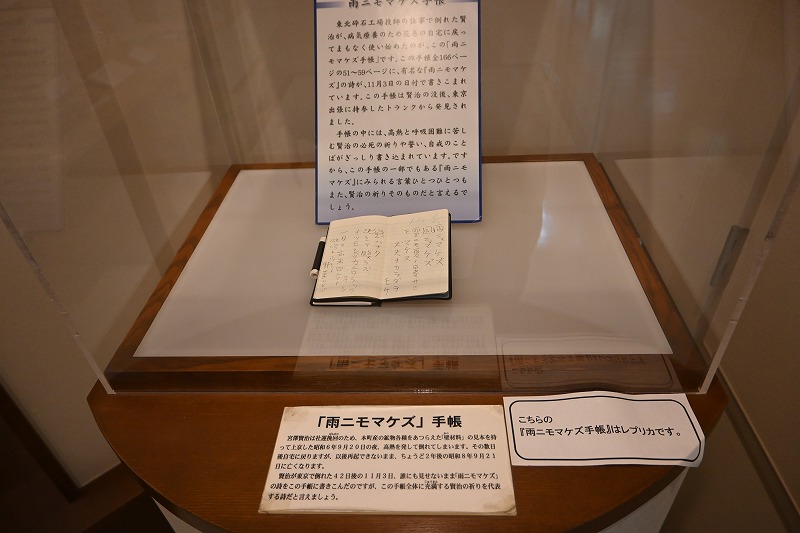 雨ニモマケズ手帳
東北砕石工場技師の仕事で倒れた賢
治が、病気療養のため花巻の自宅に戻っ
てまもなく使い始めたのが、この「雨ニ
モマケズ手帳」です。この手帳全166ペー
ジの51〜59ページに、有名な『雨ニモマケ
ズ』の詩が、11月3日の日付で書きこまれ
ています。この手帳は賢治の没後、東京
出張に持参したトランクから発見され
ました。
手帳の中には、高熱と呼吸困難に苦し
む賢治の必死の祈りや誓い、自戒のこと
ばがぎっしり書き込まれています。です
から、この手帳の一部でもある『雨ニモマ
ケズ』にみられる言葉ひとつひとつも
また、賢治の祈りそのものだと言えるで
しょう。
雨ニモマケズ
風ニモマケズ
「雨ニモマケズ」手帳
宮澤賢治は社運挽回のため、本町産の鉱物各種をあつらえた「壁材料」の見本を持
って上京した昭和6年9月20日の夜、高熱を発して倒れてしまいます。その数日
後自宅に戻りますが、以後再起できないまま、ちょうど2年後の昭和8年9月21
日に亡くなります。
賢治が東京で倒れた42日後の11月3日、誰にも見せないまま「雨ニモマケズ」
の詩をこの手帳に書きこんだのですが、この手帳全体に充満する賢治の祈りを代表
する詩だと言えましょう。
こちらの
『雨ニモマケズ手帳』はレプリカです。